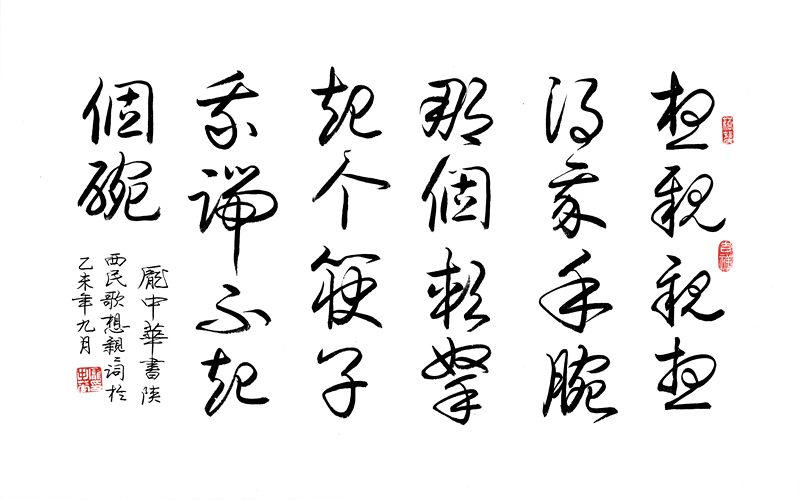 想親親想
得我手腕
那個軟拏
起个筷子
我端不起
個碗
龐中華書陝
西民歌想親〻詞於
乙未年九月